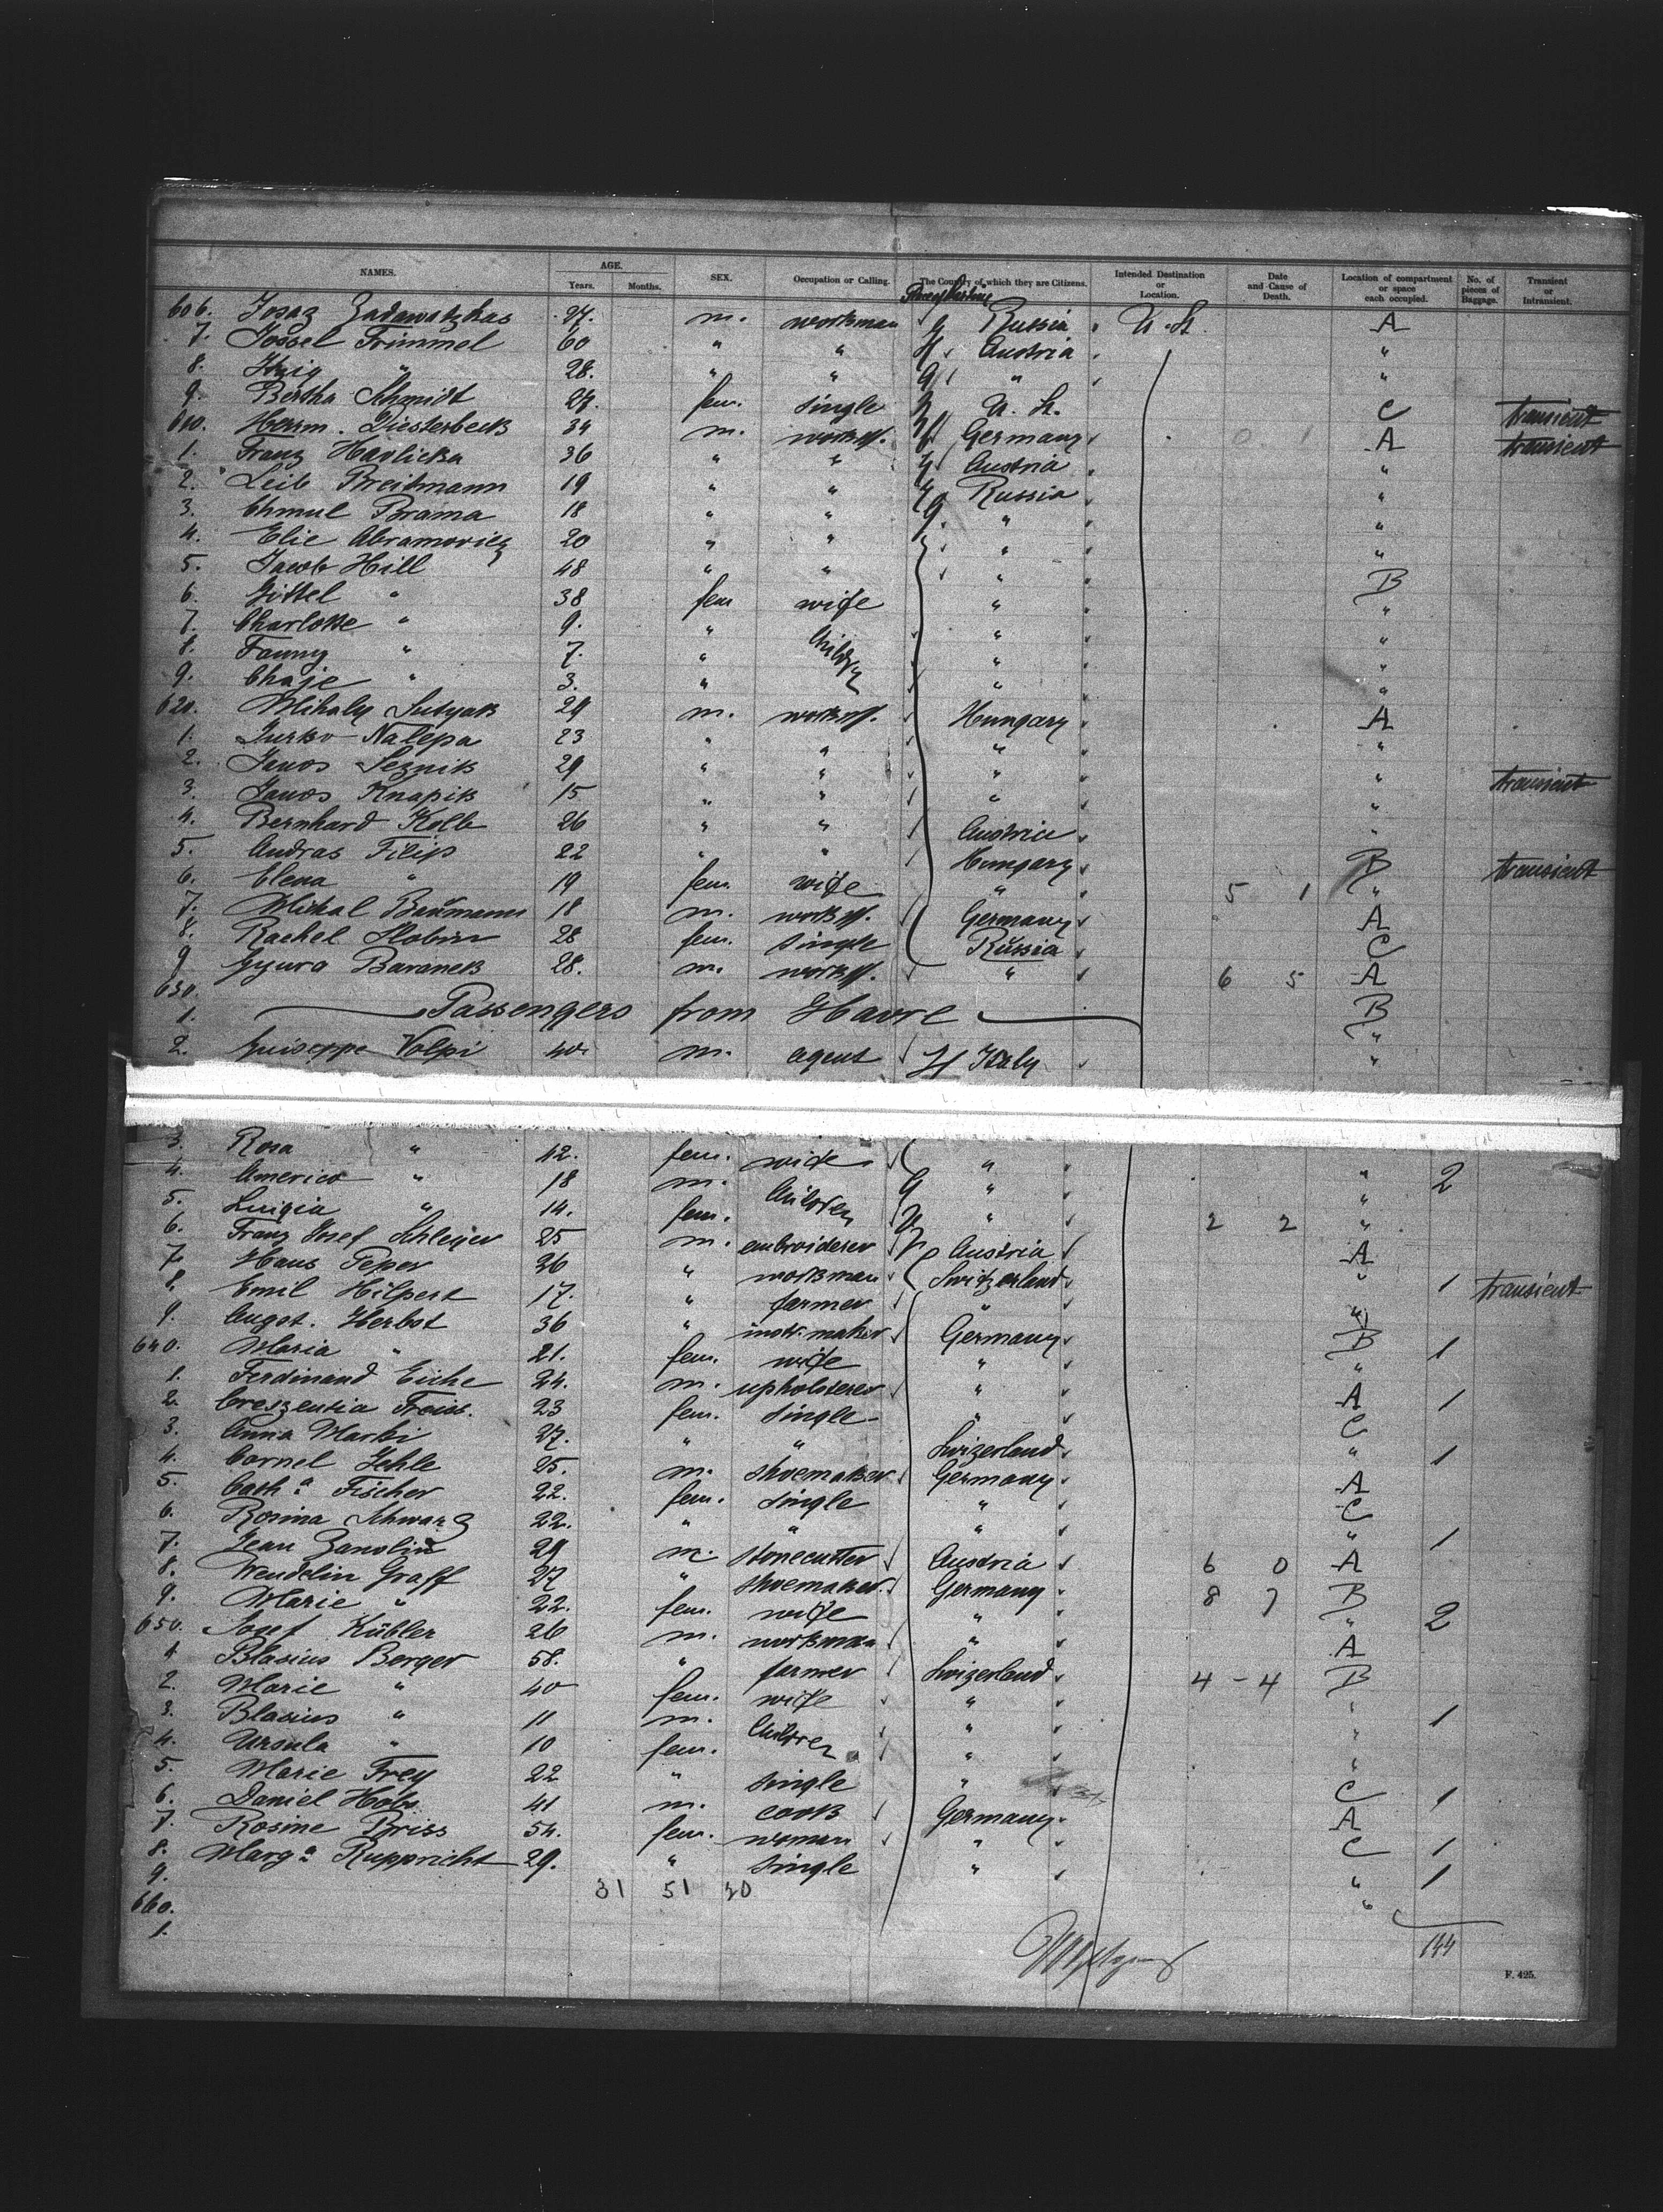 NAMES. AGE. Years. Months. SEX. Occupation or Calling. The Country of which they are Citizens. Intended Destination or Location. Date and Cause of Death. Location of compartment or space each occupied. No. of pieces of Baggage. Transient or Intransient.
606. 27. m. workman Russia U. St. A
7. Jossel Trimmel 60 " " Austria "
8. " 28. " " " "
9. Bertha Schmidt 27. fem. single U. St. C transient
610. Herrm. Diesterbeck 34 m. workm. Germany 0 1 A transient
1. Franz Havlicka 36 " " Austria "
2. Leib Breitmann 19 " " Russia "
3. Chmul Brama 18 " " " "
4. Elie Abramovicz 20 " " " "
5. Jacob Hill 48 " " " B
6. Gittel " 38 fem wife " "
7. Charlotte " 9. " Children " "
8. Fanny " 7. " " "
9. Chaje " 3. " " "
620. Mihaly 29 m. workm. Hungary A
1. Jurko Nalepa 23 " " " "
2. Janos Leznik 29 " " " " transient
3. Janos Knapik 15 " " " "
4. Bernhard Kolb 26 " " Austria "
5. Andras Filip 22 " " Hungary B transient
6. Elena " 19 fem. wife " 5 1 "
7. Mihal Baumann 18 m. workm. Germany A
8. Rachel Slobin 28 fem. single Russia C
9 Gyura Baranek 28. m. workm. " 6 5 A
630. Passengers from Havre B
1. "
2. Guiseppe Volpi 40. m. agent Italy "
3. Rosa " 42. fem. wife "
4. Americo " 18 m. Children " " 2
5. Luigia " 14. fem. " 2 2 "
6. Franz Josef Schleger 25 m. embroiderer Austria A
7. Hans Peper 36 " workman Switzerland " 1 transient
8. Emil Hilpert 17. " farmer " "
9. Augst. Herbst 36 " instr. maker Germany B 1
640. Maria " 21. fem. wife " "
1. Ferdinand Eiche 24. m. upholsterer " A 1
2. Creszentia 23 fem. single " C
3. Anna Marki 27. " " Swizerland " 1
4. Cornel Jehle 25. m. shoemaker Germany A
5. Cath.a Fischer 22. fem. single " C
6. Rosina Schwarz 22. " " " " 1
7. Jean Zanolin 29 m. stonecutter Austria 6 0 A
8. Wendelin Graff 27 " shoemaker Germany 8 7 B
9. Marie " 22. fem. wife " " 2
650. Josef Kübler 26 m. workman " A
1 Blasius Berger 58. " farmer Swizerland 4 - 4 B
2. Marie " 40 fem. wife " "
3. Blasius " 11 m. Children " " 1
4. Ursula " 10 fem. " "
5. Marie Frey 22 " single " C 1
6. Daniel 41 m. cook Germany A
7. Rosine Briss 54. fem. woman " C 1
8. Marg.a Ruppricht 29. " single " " 1
9. 31 51 20 "
660.
1. 144
F. 425.